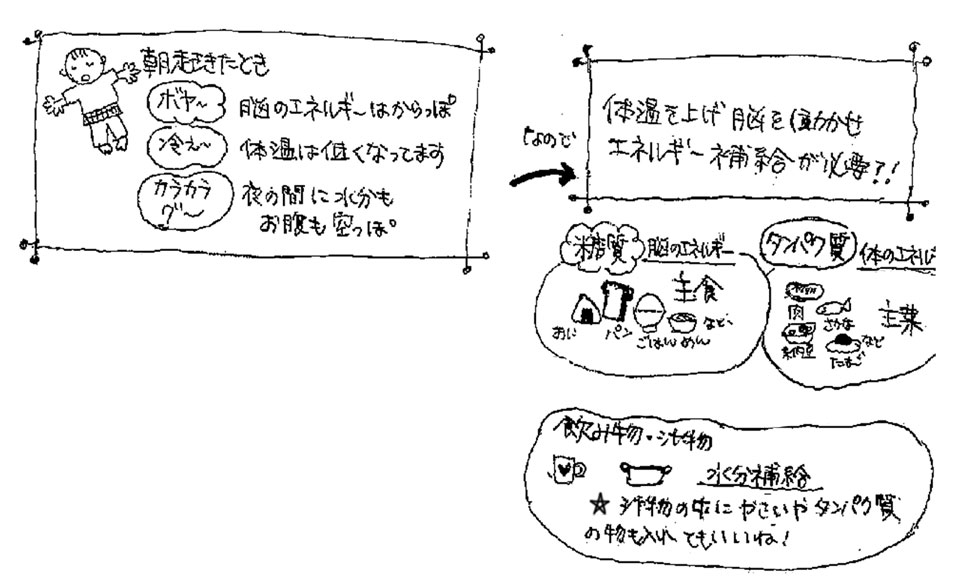 朝起きたとき
ボヤ〜
脳のエネルギーはからっぽ
冷え〜
体温は低くなってます
カラカラ
グ〜
夜の間に水分も
お腹も空っぽ
なので
体温を上げ脳を働かせ
エネルギー補給が必要?!
糖質
脳のエネルギー
主食
おに
パン
ごはん
めん
など、
タンパク質
体のエネルギ
主菜
肉
さかな
納豆
たまご
など
飲み物・汁物
水分補給
☆ 汁物の中にやさいやタンパク質
の物も入れてもいいね!